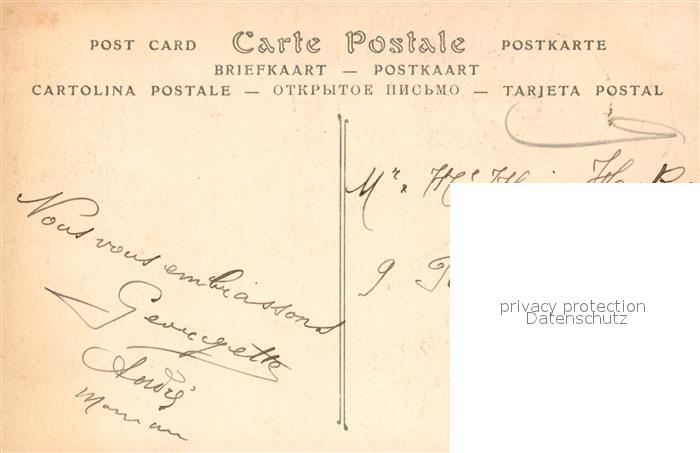 POST CARD Carte Postale POSTKARTE
BRIEFKAART — POSTKAART
CARTOLINA POSTALE — ОТКРЫТОЕ ПИСЬМО — TARJETA POSTAL
Mr & Me
9.
Nous vous embrassons
Georgette
André
Maman
privacy protection
Datenschutz